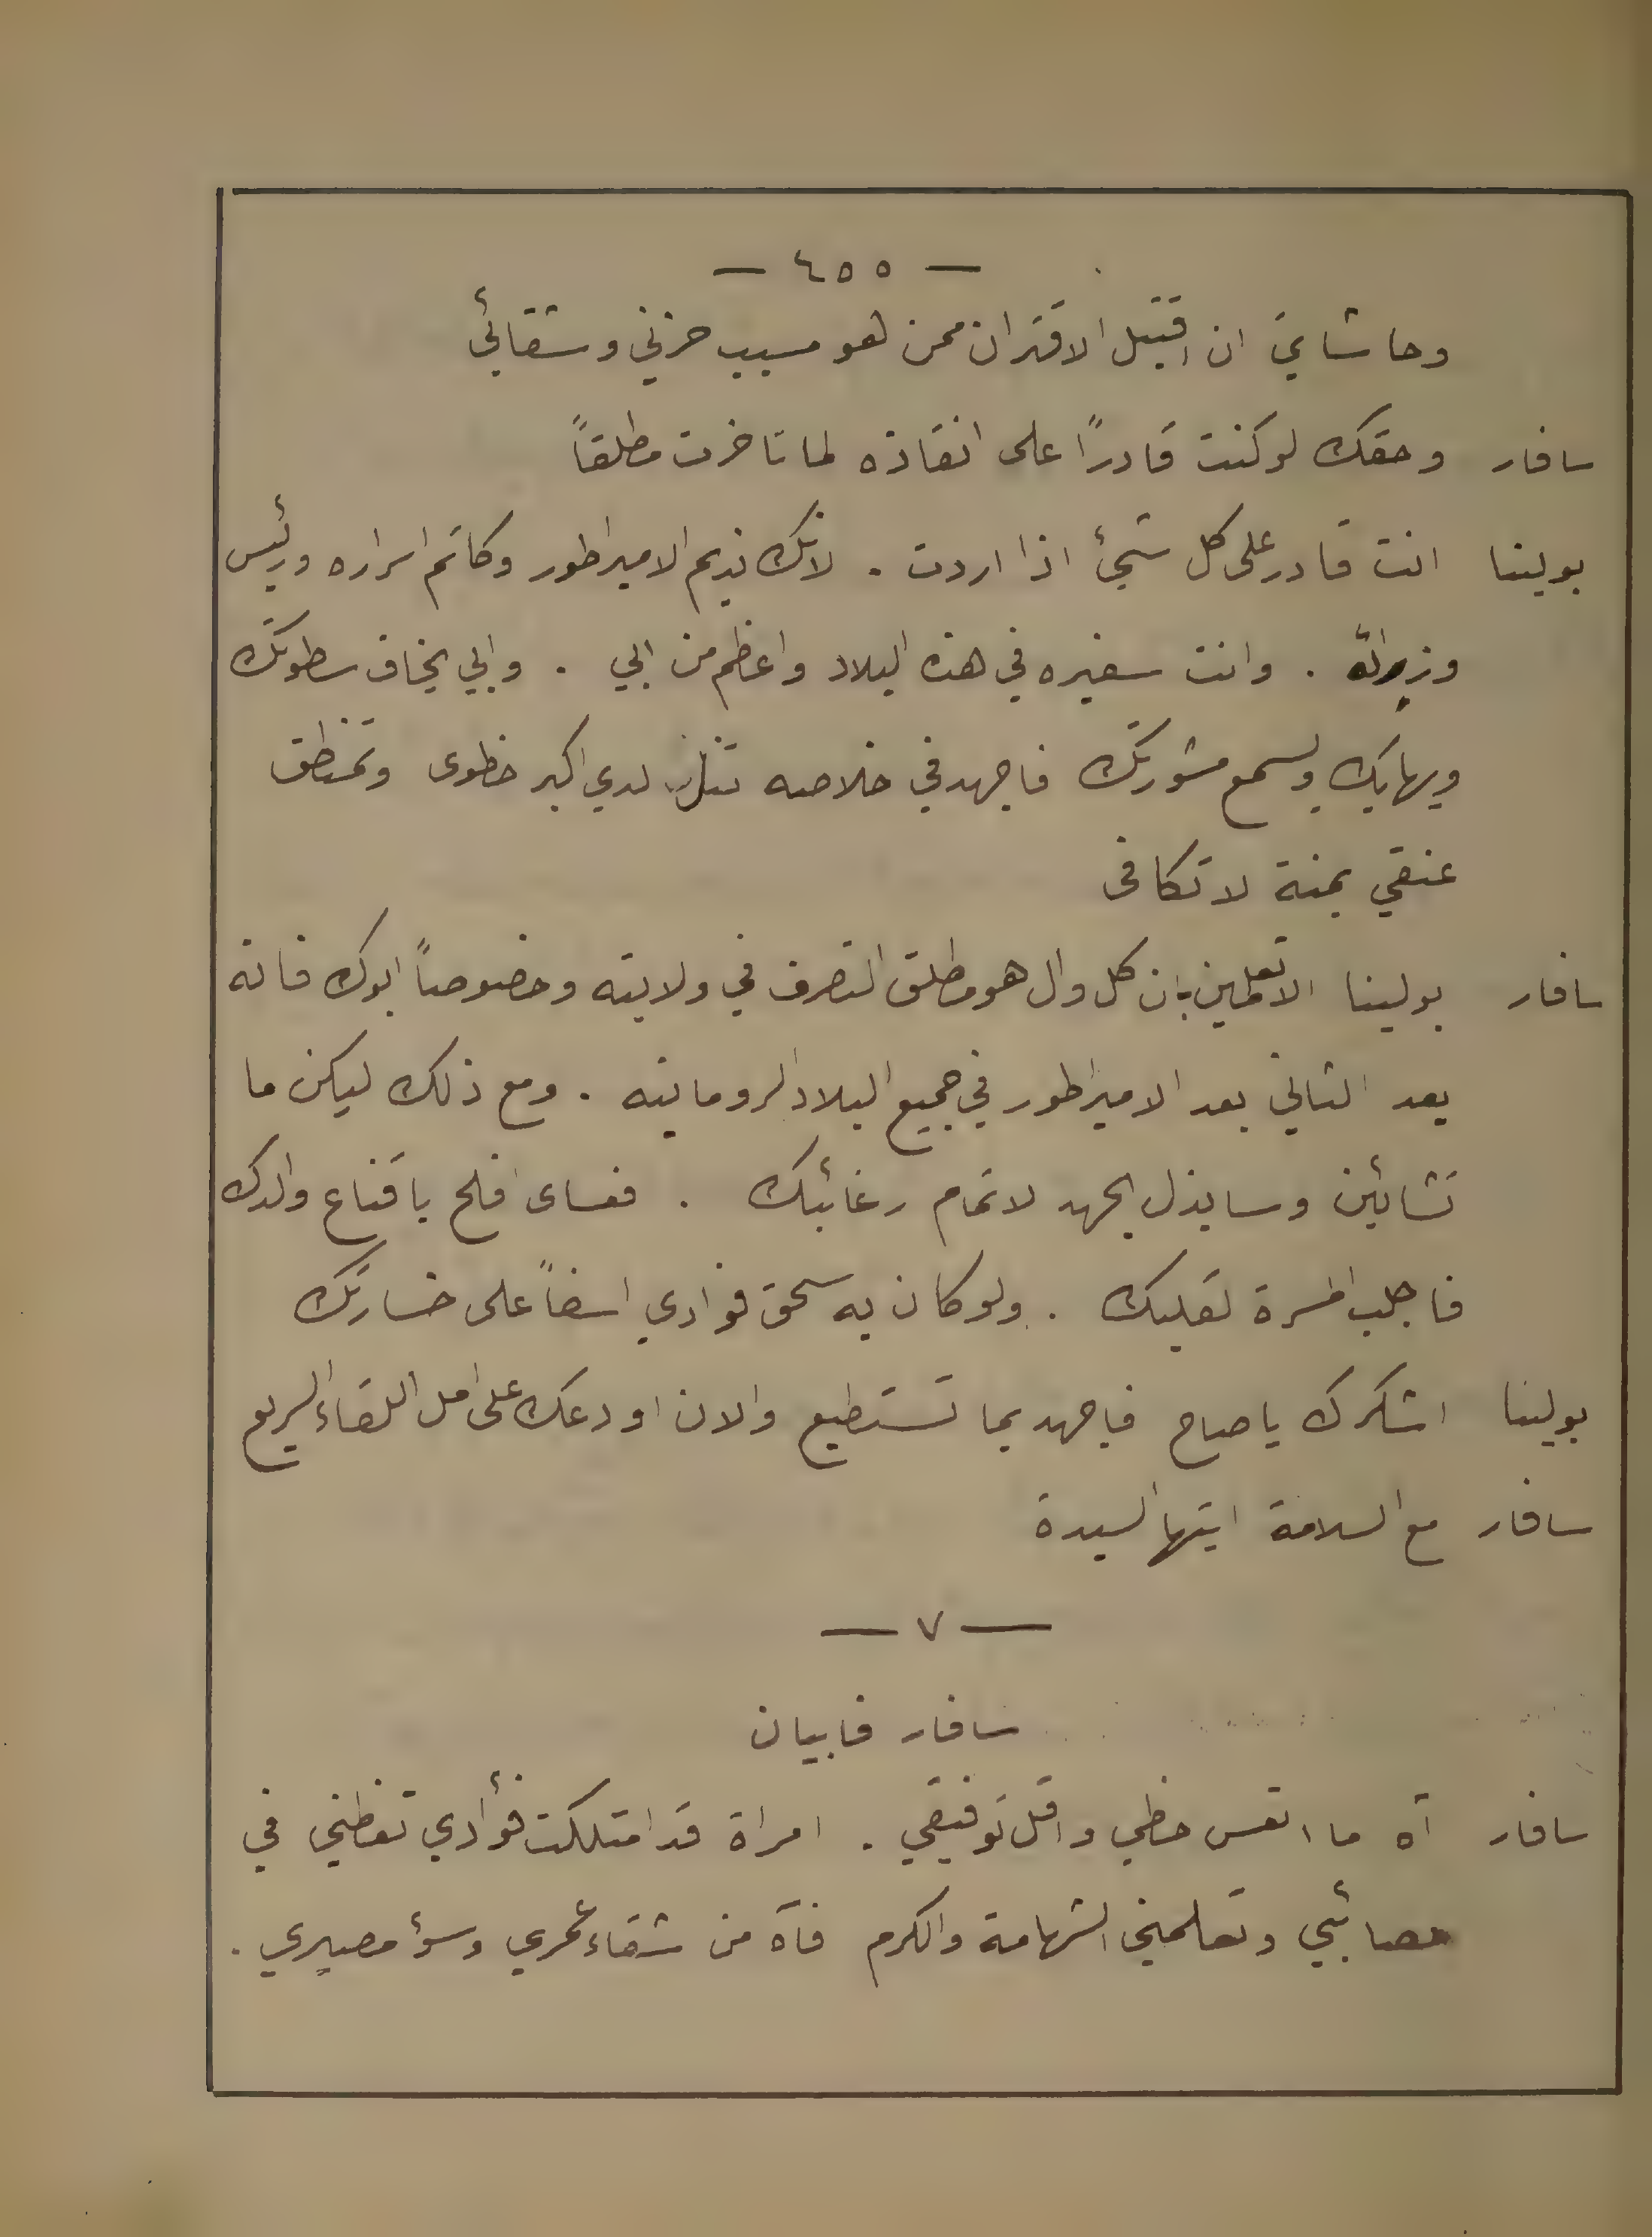 — ٤٥٥ —
وحاشاي ان اقبل الاقتران ممن هو مسبب حزني وشقائي
سافار وحقك لو كنت قادراً على انقاذه لما تاخرت مطلقاً
بولينا انت قادر على كل شيئ اذا اردت . لانك نديم الامبراطور وكاتم اسراره ورئيس
وزرائه . وانت سفيره في هذه البلاد واعظم من ابي . وابي يخاف سطوتك
ويهابك ويسمع مشورتك فاجهد في خلاصه تنل لدي اكبر حظوى وتمنطق
عنقي بمنة لا تكافى
سافار بولينا الا تعلمين بان كل وال هو مطلق التصرف في ولايته وخصوصاً ابوك فانه
يعد الثاني بعد الامبراطور في جميع البلاد الرومانيه . ومع ذلك ليكن ما
تشائين وسابذل الجهد لاتمام رغائبك . فعساى افلح باقناع والدك
فاجلب المسرة لقلبك . ولو كان به سحق فوادي اسفاً على خسارتك
بولينا اشكرك يا صاح فاجهد بما تستطيع والان اودعك على امل اللقاء السريع
سافار مع السلامة ايتها السيدة
— ٧ —
سافار فابيان
سافار آه ما اتعس حظي واقل توفيقي . امراة قد امتلكت فؤادي تعظني في
مصائبي وتعلمني الشهامة والكرم فآه من شقاء عمري وسؤ مصيري .